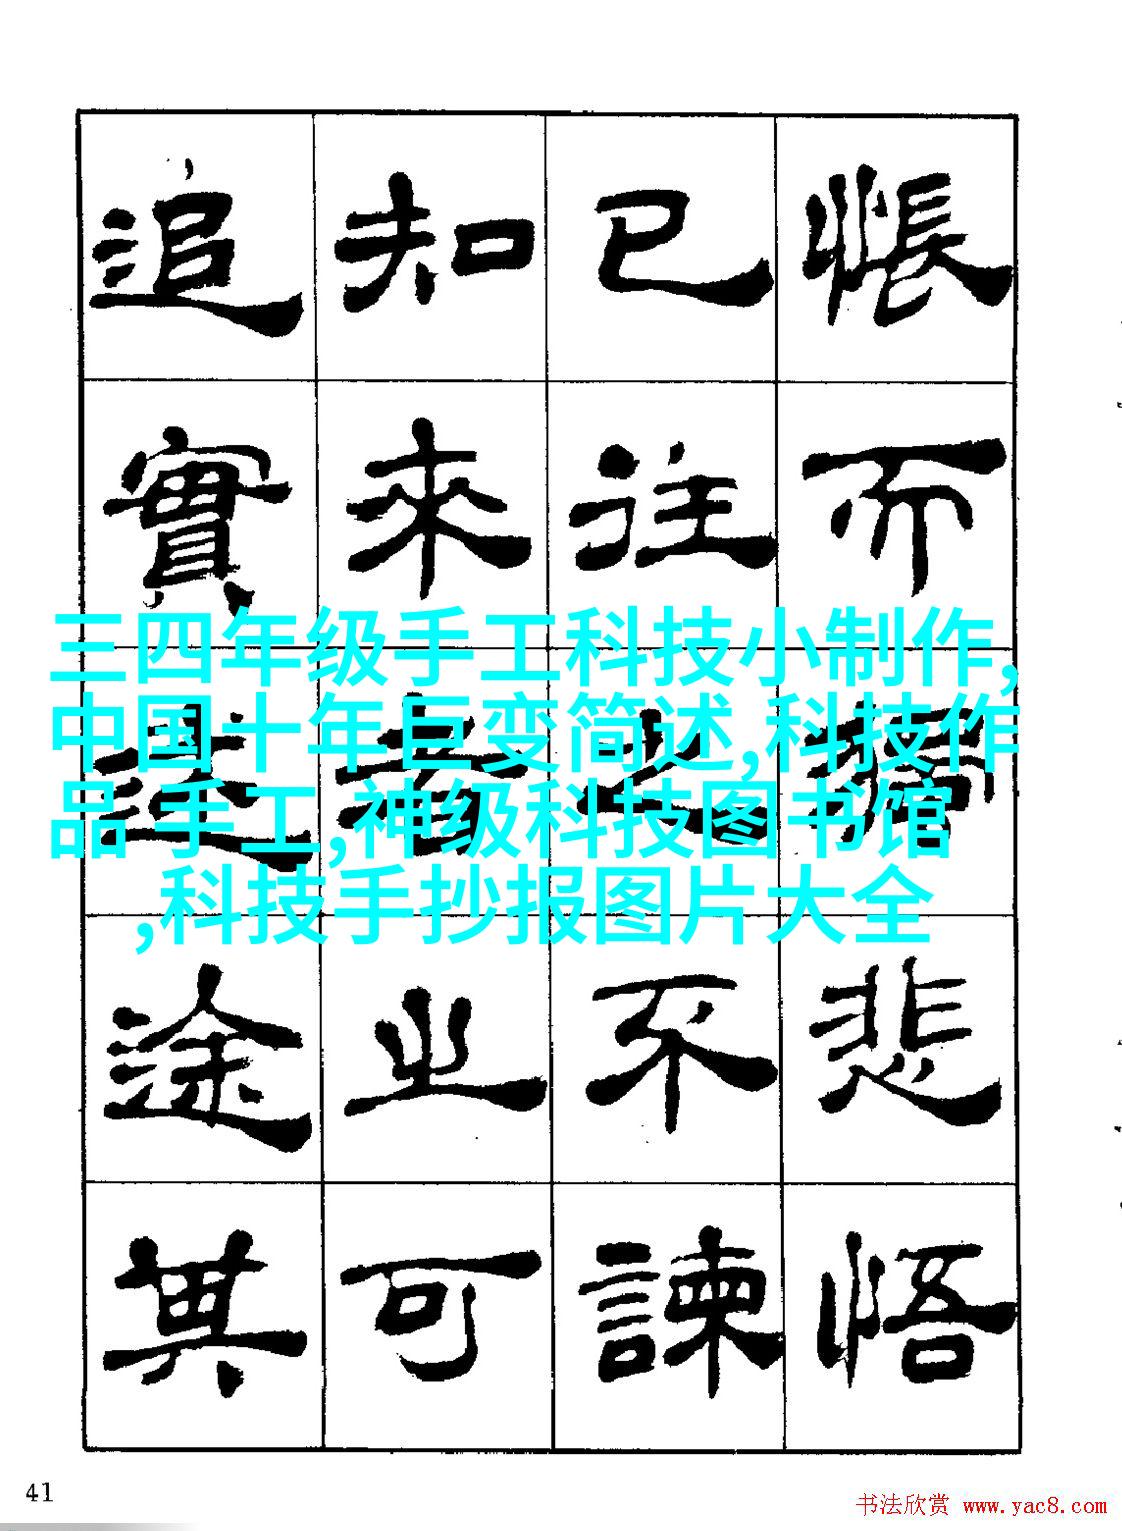 悵而獨悲悟
已往之不諫
知來者之可
追實迷途其
三四年级手工科技小制作,
中国十年巨变简述,科技作
品 手工,神级科技图书馆
,科技手抄报图片大全
41
书法欣赏 www.yac8.com